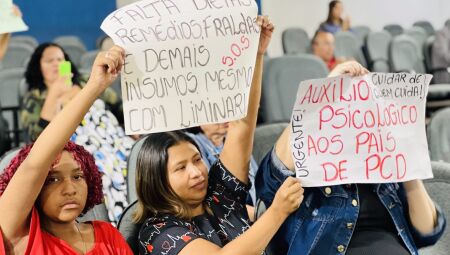 FALTA DIETAS
REMÉDIOS, FRALDAS
E DEMAIS S.O.S
INSUMOS MESMO
COM LIMINAR!
CUIDAR DE
QUEM CUIDA!
AUXÍLIO
PSICOLOGICO
AOS PAIS
DE PCD
URGENTE!